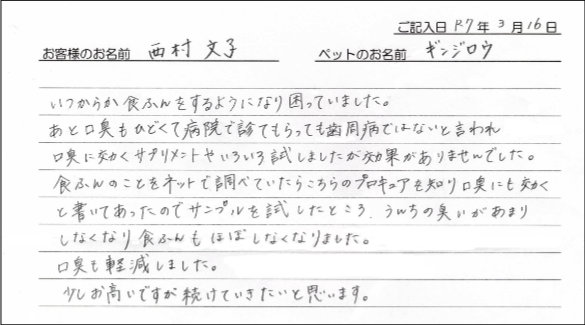 ご記入日 R7年 3月16日
お客様のお名前 西村 文子 ペットのお名前 ギンジロウ
いつからか食ふんをするようになり困っていました。
あと口臭もひどくて病院で診てもらっても歯周病ではないと言われ
口臭に効くサプリメントやいろいろ試しましたが効果がありませんでした。
食ふんのことをネットで調べていたらこちらのプロキュアを知り口臭にも効く
と書いてあったのでサンプルを試したところ、うんちの臭いがあまり
しなくなり食ふんもほぼしなくなりました。
口臭も軽減しました。
少しお高いですが続けていきたいと思います。